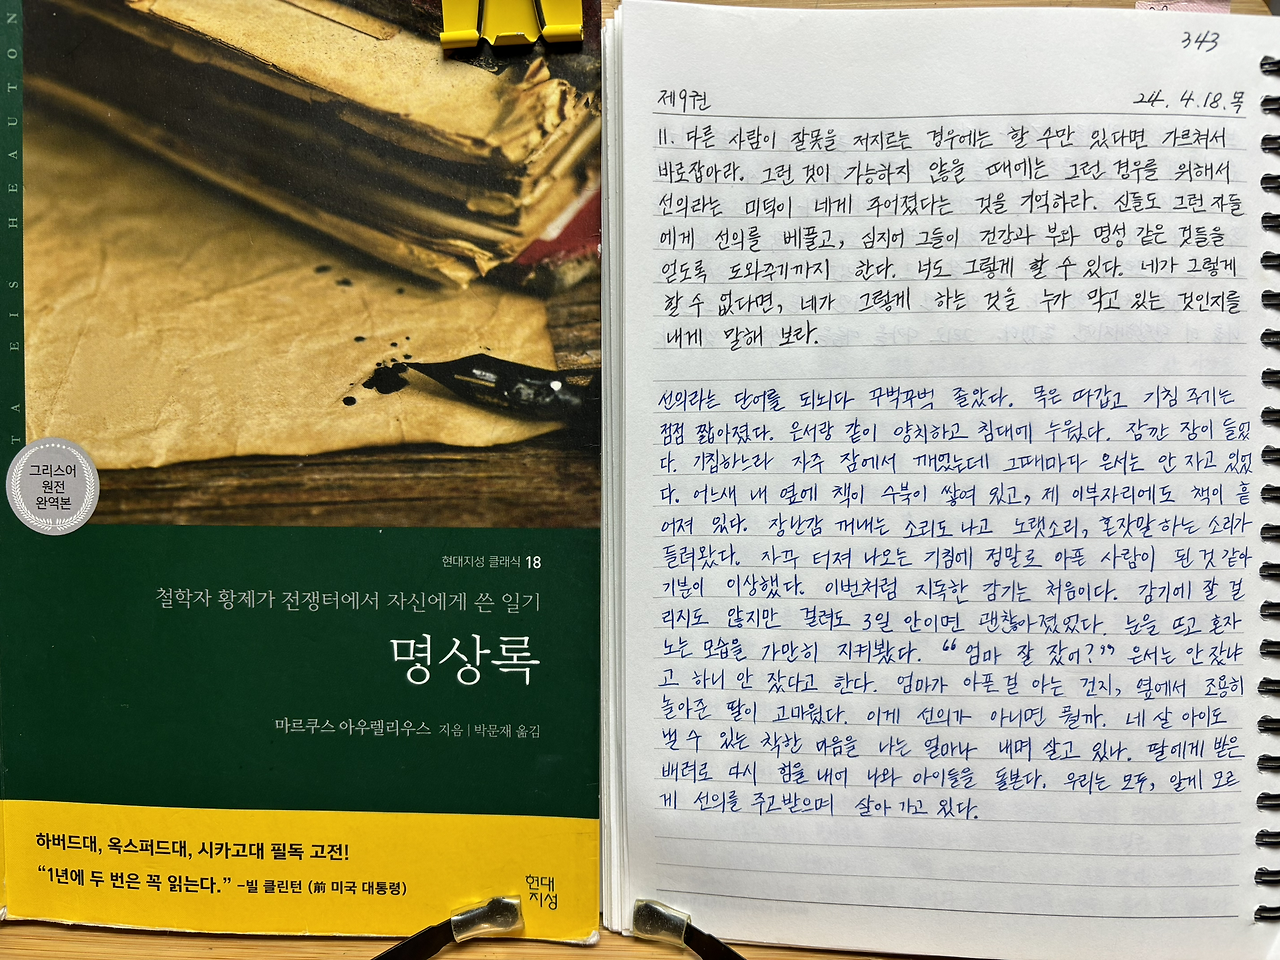 TA EIS HEAUTON
그리스어
원전
완역본
현대지성 클래식 18
철학자 황제가 전쟁터에서 자신에게 쓴 일기
명상록
마르쿠스 아우렐리우스 지음 | 박문재 옮김
하버드대, 옥스퍼드대, 시카고대 필독 고전!
“1년에 두 번은 꼭 읽는다.” –빌 클린턴 (前 미국 대통령)
현대
지성
343
제9권 24. 4.18.목
11. 다른 사람이 잘못을 저지르는 경우에는 할 수만 있다면 가르쳐서
바로잡아라. 그런 것이 가능하지 않을 때에는 그런 경우를 위해서
선의라는 미덕이 네게 주어졌다는 것을 기억하라. 신들도 그런 자들
에게 선의를 베풀고, 심지어 그들이 건강과 부와 명성 같은 것들을
얻도록 도와주기까지 한다. 너도 그렇게 할 수 있다. 네가 그렇게
할 수 없다면, 네가 그렇게 하는 것을 누가 막고 있는 것인지를
내게 말해 보라.
선의라는 단어를 되뇌다 꾸벅꾸벅 졸았다. 목은 따갑고 기침 주기는
점점 짧아졌다. 은서랑 같이 양치하고 침대에 누웠다. 잠깐 잠이 들었
다. 기침하느라 자주 잠에서 깨었는데 그때마다 은서는 안 자고 있었
다. 어느새 내 옆에 책이 수북이 쌓여 있고, 제 이부자리에도 책이 흩
어져 있다. 장난감 꺼내는 소리도 나고 노랫소리, 혼잣말 하는 소리가
들려왔다. 자꾸 터져 나오는 기침에 정말로 아픈 사람이 된 것 같아
기분이 이상했다. 이번처럼 지독한 감기는 처음이다. 감기에 잘 걸
리지도 않지만 걸려도 3일 안이면 괜찮아졌었다. 눈을 뜨고 혼자
노는 모습을 가만히 지켜봤다. “엄마 잘 잤어?” 은서는 안 잤냐
고 하니 안 잤다고 한다. 엄마가 아픈 걸 아는 건지, 옆에서 조용히
놀아준 딸이 고마웠다. 이게 선의가 아니면 뭘까. 네 살 아이도
낼 수 있는 착한 마음을 나는 얼마나 내며 살고 있나. 딸에게 받은
배려로 다시 힘을 내어 나와 아이들을 돌본다. 우리는 모두, 알게 모르
게 선의를 주고받으며 살아 가고 있다.